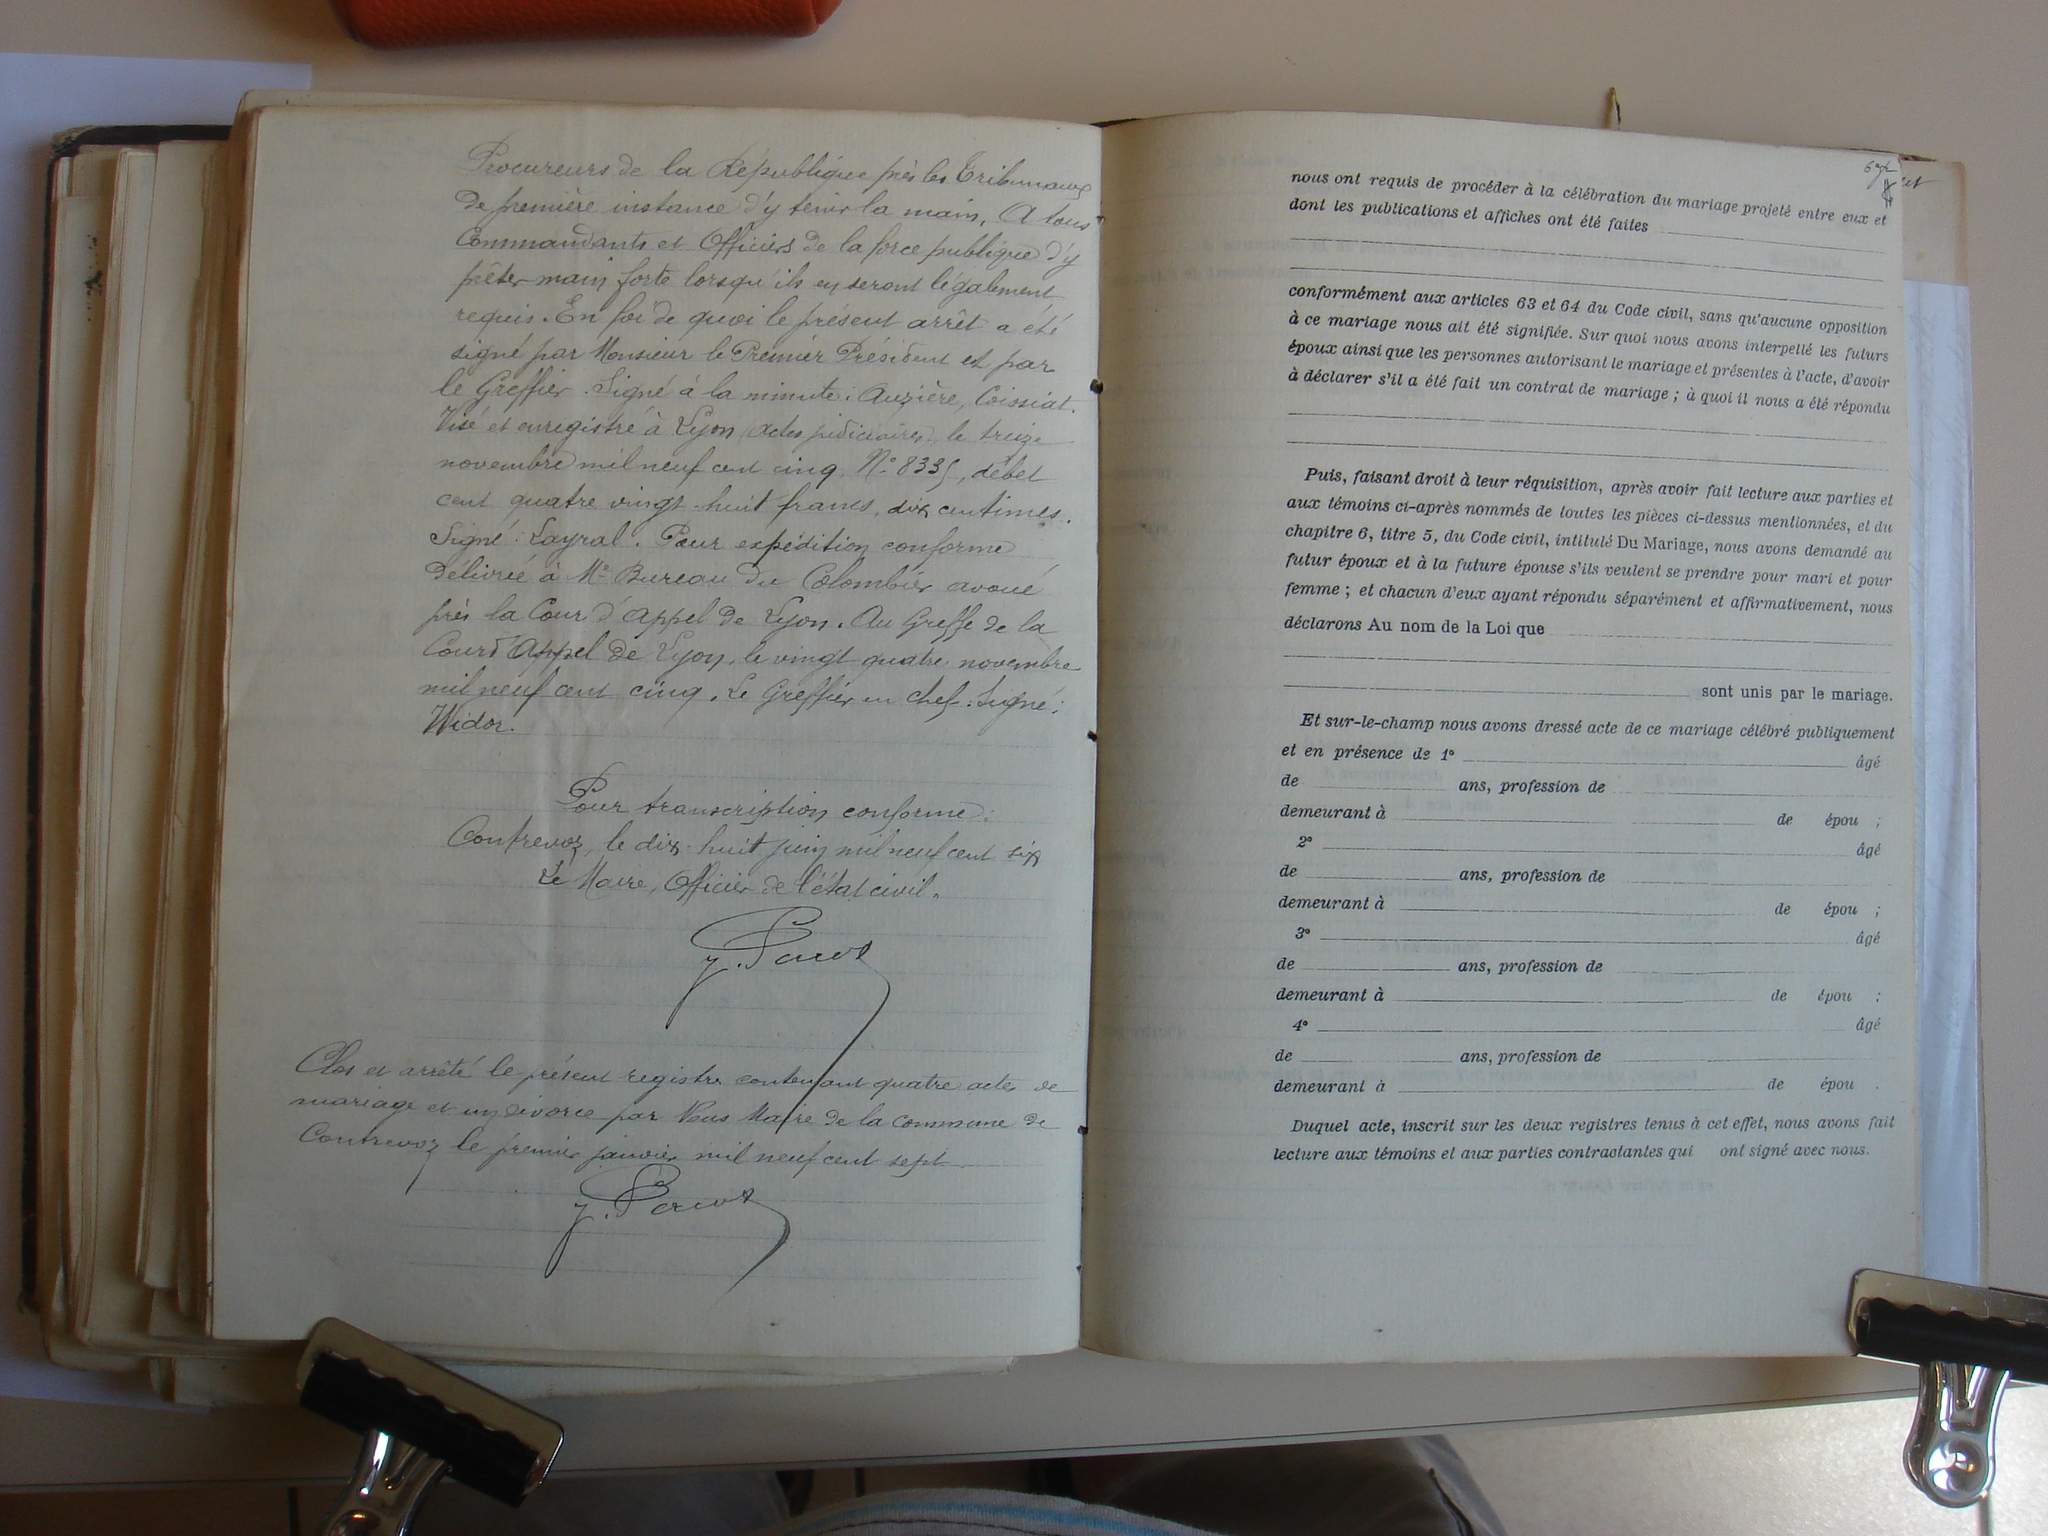 Procureurs de la République près les Tribunaux
de première instance d'y tenir la main, A tous
Commandants et Officiers de la force publique d'y
prêter main forte lorsqu'ils en seront légalement
requis. En foi de quoi le présent arrêt a été
signé par Monsieur le Premier Président et par
le Greffier. Signé à la minute : Auzière, Coissiat.
Visé et enregistré à Lyon (actes judiciaires), le treize
novembre mil neuf cent cinq. N° 8335, débet
cent quatre vingt-huit francs, dix centimes.
Signé : Layral. Pour expédition conforme
délivrée à Me Bureau du Colombier avoué
près la Cour d'Appel de Lyon. Au Greffe de la
Cour d'Appel de Lyon, le vingt quatre novembre
mil neuf cent cinq. Le Greffier en chef. Signé :
Widor.
Pour transcription conforme :
Contrevoz, le dix-huit juin mil neuf cent six
Le Maire, Officier de l'état civil.
Clos et arrêté le présent registre contenant quatre actes de
mariage et un divorce par Nous Maire de la commune de
Contrevoz le premier janvier mil neuf cent sept
nous ont requis de procéder à la célébration du mariage projeté entre eux et
dont les publications et affiches ont été faites
conformément aux articles 63 et 64 du Code civil, sans qu'aucune opposition
à ce mariage nous ait été signifiée. Sur quoi nous avons interpellé les futurs
époux ainsi que les personnes autorisant le mariage et présentes à l'acte, d'avoir
à déclarer s'il a été fait un contrat de mariage ; à quoi il nous a été répondu
Puis, faisant droit à leur réquisition, après avoir fait lecture aux parties et
aux témoins ci-après nommés de toutes les pièces ci-dessus mentionnées, et du
chapitre 6, titre 5, du Code civil, intitulé Du Mariage, nous avons demandé au
futur époux et à la future épouse s'ils veulent se prendre pour mari et pour
femme ; et chacun d'eux ayant répondu séparément et affirmativement, nous
déclarons Au nom de la Loi que
sont unis par le mariage.
Et sur-le-champ nous avons dressé acte de ce mariage célébré publiquement
et en présence de 1° âgé
de ans, profession de
demeurant à de épou ;
2° âgé
de ans, profession de
demeurant à de épou ;
3° âgé
de ans, profession de
demeurant à de épou ;
4° âgé
de ans, profession de
demeurant à de épou .
Duquel acte, inscrit sur les deux registres tenus à cet effet, nous avons fait
lecture aux témoins et aux parties contractantes qui ont signé avec nous.